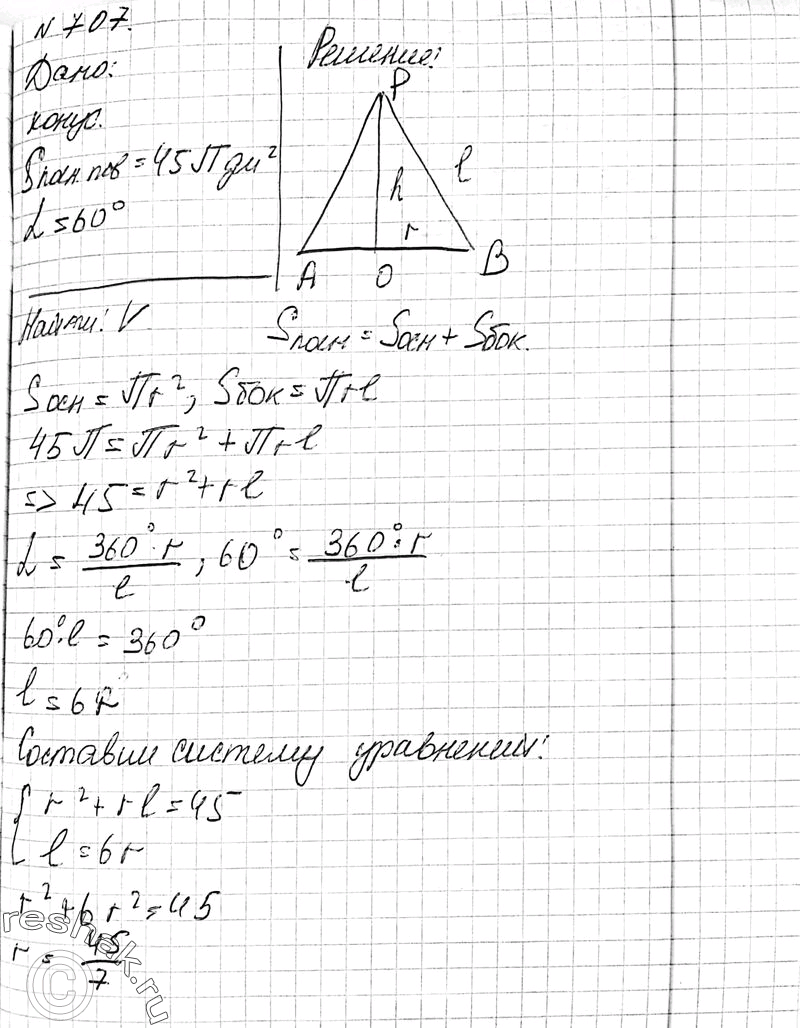 N 707.
Дано:
конус.
Sпол. пов = 45П дм²
α = 60°
Найти: V
Решение:
P
l
h
r
A O B
Sполн = Sосн + Sбок.
Sосн = Пr²; Sбок = Пrl
45П = Пr² + Пrl
=> 45 = r² + rl
α = 360°·r / l ; 60° = 360°·r / l
60°·l = 360°
l = 6r
Составим систему уравнений:
{ r² + rl = 45
l = 6r
r² + 6r² = 45
r = 45/7
© reshak.ru